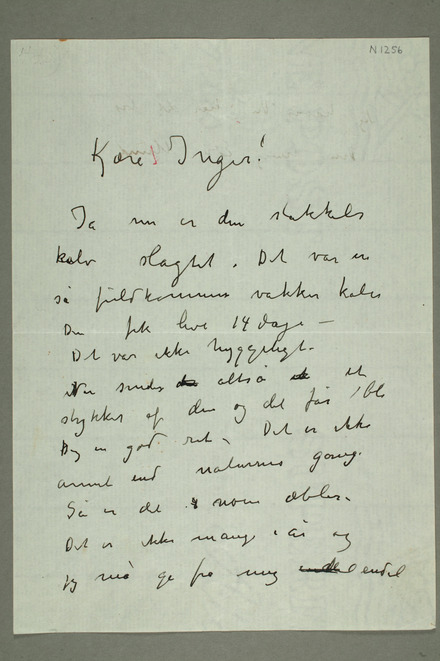 N 1256
Kære Inger!
Ja nu er den stakkels
kalv slagtet. Det var en
så fuldkommen vakker kalv
Den fik leve 14 dage –
Det var ikke hyggeligt.
Nu sender altså et
stykke af den og det får bli
Dig en god ret. Det er ikke
annet end naturens gang.
Så er det noen æbler.
Det er ikke mange i år og
jeg må ge fra meg endel